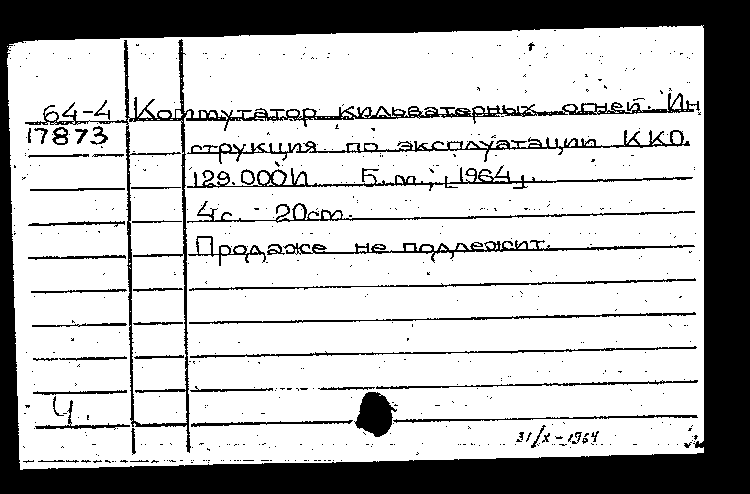 64-4 Коммутатор кильватерных огней. Ин
17873 струкция по эксплуатации ККО.
129.000И Б. м., [1964].
4 с. 20 cm.
Продаже не подлежит.
Ч.
31/X-1964